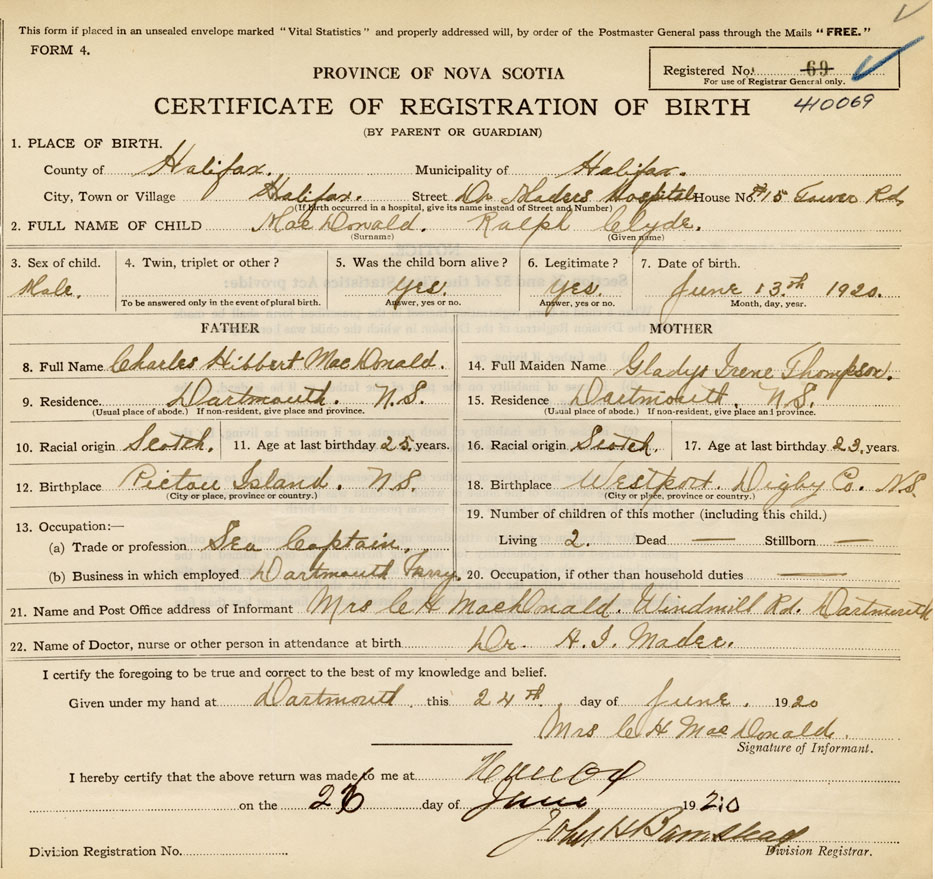 This form if placed in an unsealed envelope marked "Vital Statistics" and properly addressed will, by order of the Postmaster General pass through the Mails "FREE."
FORM 4.
Registered No. 69
For use of Registrar General only.
410069
PROVINCE OF NOVA SCOTIA
CERTIFICATE OF REGISTRATION OF BIRTH
(BY PARENT OR GUARDIAN)
1. PLACE OF BIRTH.
County of Halifax. Municipality of Halifax.
City, Town or Village Halifax. Street Dr Maders Hospital House No. #15 Tower Rd.
(If birth occurred in a hospital, give its name instead of Street and Number)
2. FULL NAME OF CHILD MacDonald. Ralph Clyde.
(Surname) (Given name)
3. Sex of child. Male.
4. Twin, triplet or other?
To be answered only in the event of plural birth.
5. Was the child born alive? Yes.
Answer, yes or no.
6. Legitimate? Yes.
Answer, yes or no.
7. Date of birth. June 13th 1920.
Month, day, year.
FATHER
8. Full Name Charles Hibbert MacDonald.
9. Residence Dartmouth. N.S.
(Usual place of abode.) If non-resident, give place and province.
10. Racial origin Scotch. 11. Age at last birthday 25 years.
12. Birthplace Pictou Island. N.S.
(City or place, province or country.)
13. Occupation:—
(a) Trade or profession Sea Captain.
(b) Business in which employed Dartmouth Ferry.
MOTHER
14. Full Maiden Name Gladys Irene Thompson.
15. Residence Dartmouth. N.S.
(Usual place of abode.) If non-resident, give place and province.
16. Racial origin Scotch. 17. Age at last birthday 23 years.
18. Birthplace Westport. Digby Co. N.S.
(City or place, province or country.)
19. Number of children of this mother (including this child.)
Living 2. Dead — Stillborn —
20. Occupation, if other than household duties —
21. Name and Post Office address of Informant Mrs C H MacDonald. Windmill Rd. Dartmouth
22. Name of Doctor, nurse or other person in attendance at birth Dr. H. I. Mader.
I certify the foregoing to be true and correct to the best of my knowledge and belief.
Given under my hand at Dartmouth, this 24th day of June, 1920
Mrs C H MacDonald.
Signature of Informant.
I hereby certify that the above return was made to me at
on the 26 day of June 1920
John H Barnstead
Division Registration No. Division Registrar.